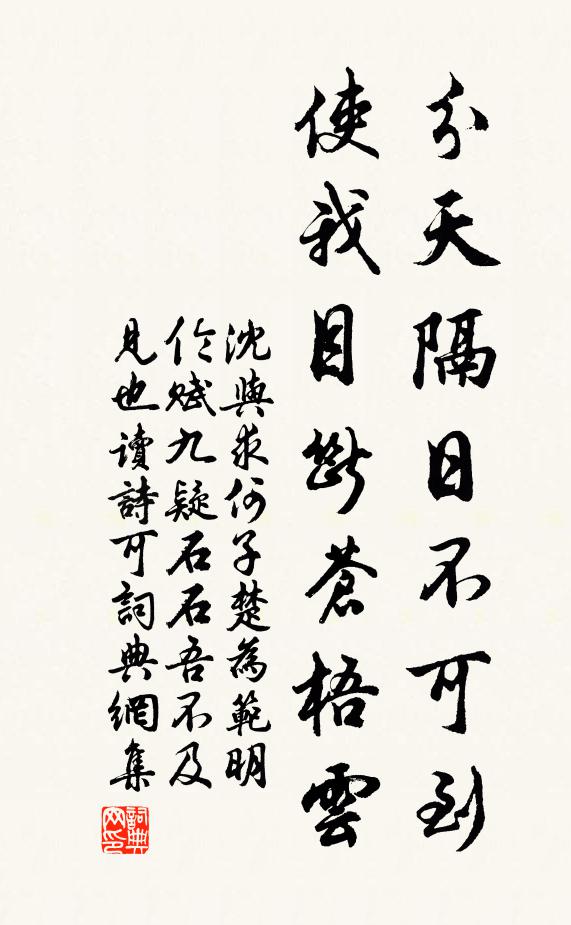 分天隔日不可到
使我目斷蒼梧雲
沈與求何子楚為範明
伶賦九疑石石吾不及
見也讀詩可詞典網集
詞典网印